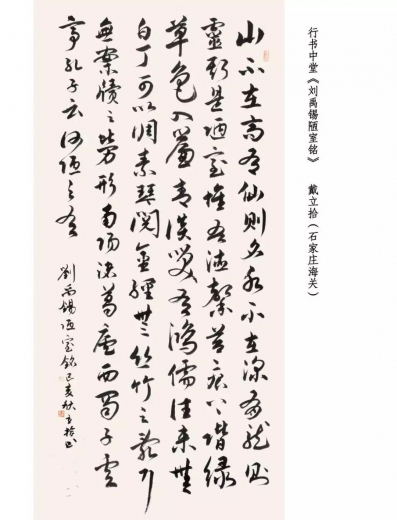 行书中堂《刘禹锡陋室铭》 戴立拾（石家庄海关）
山不在高有仙则名水不在深有龙则
靈斯是陋室惟吾德馨苔痕上階绿
草色入簾青谈笑有鸿儒往来無
白丁可以调素琴阅金經無丝竹之亂耳
無案牍之勞形南陽诸葛廬西蜀子雲
亭孔子云何陋之有
劉禹锡陋室銘己亥秋立拾书